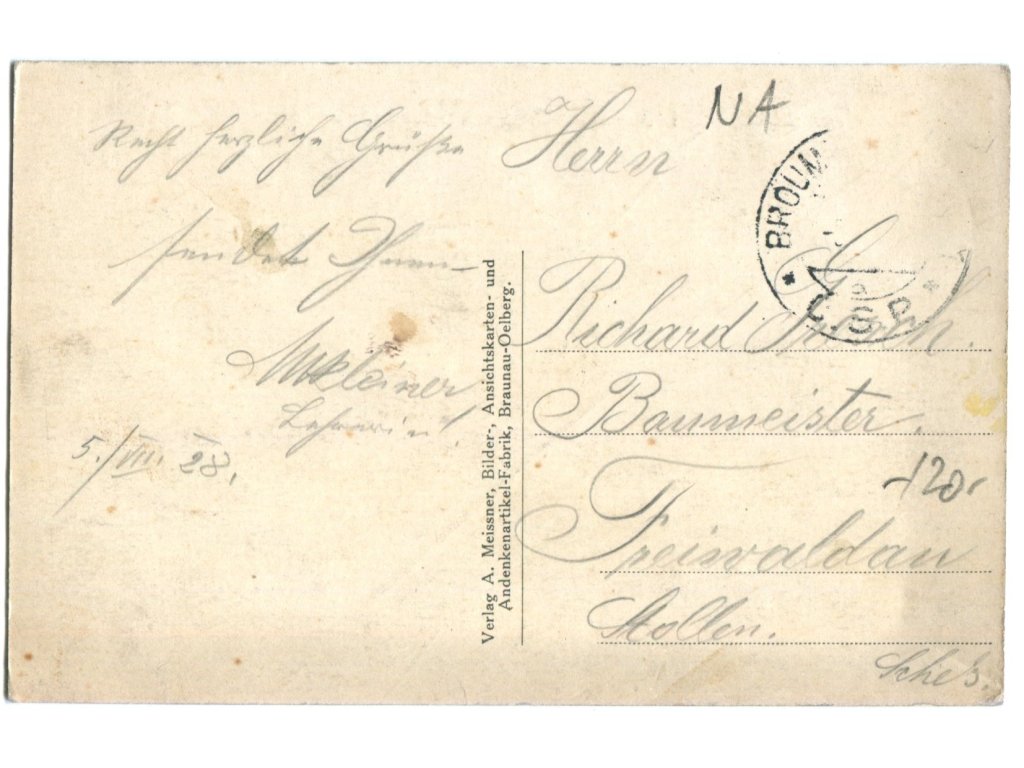 Recht herzliche Grüße
sendet Ihnen
Lehrerin
5./VII. 28.
Verlag A. Meissner, Bilder-, Ansichtskarten- und
Andenkenartikel-Fabrik, Braunau-Oelberg.
NA
* BROUM
Č.S.P. *
Herrn
Richard
Baumeister.
Freiwaldau
Schles.
-120,-